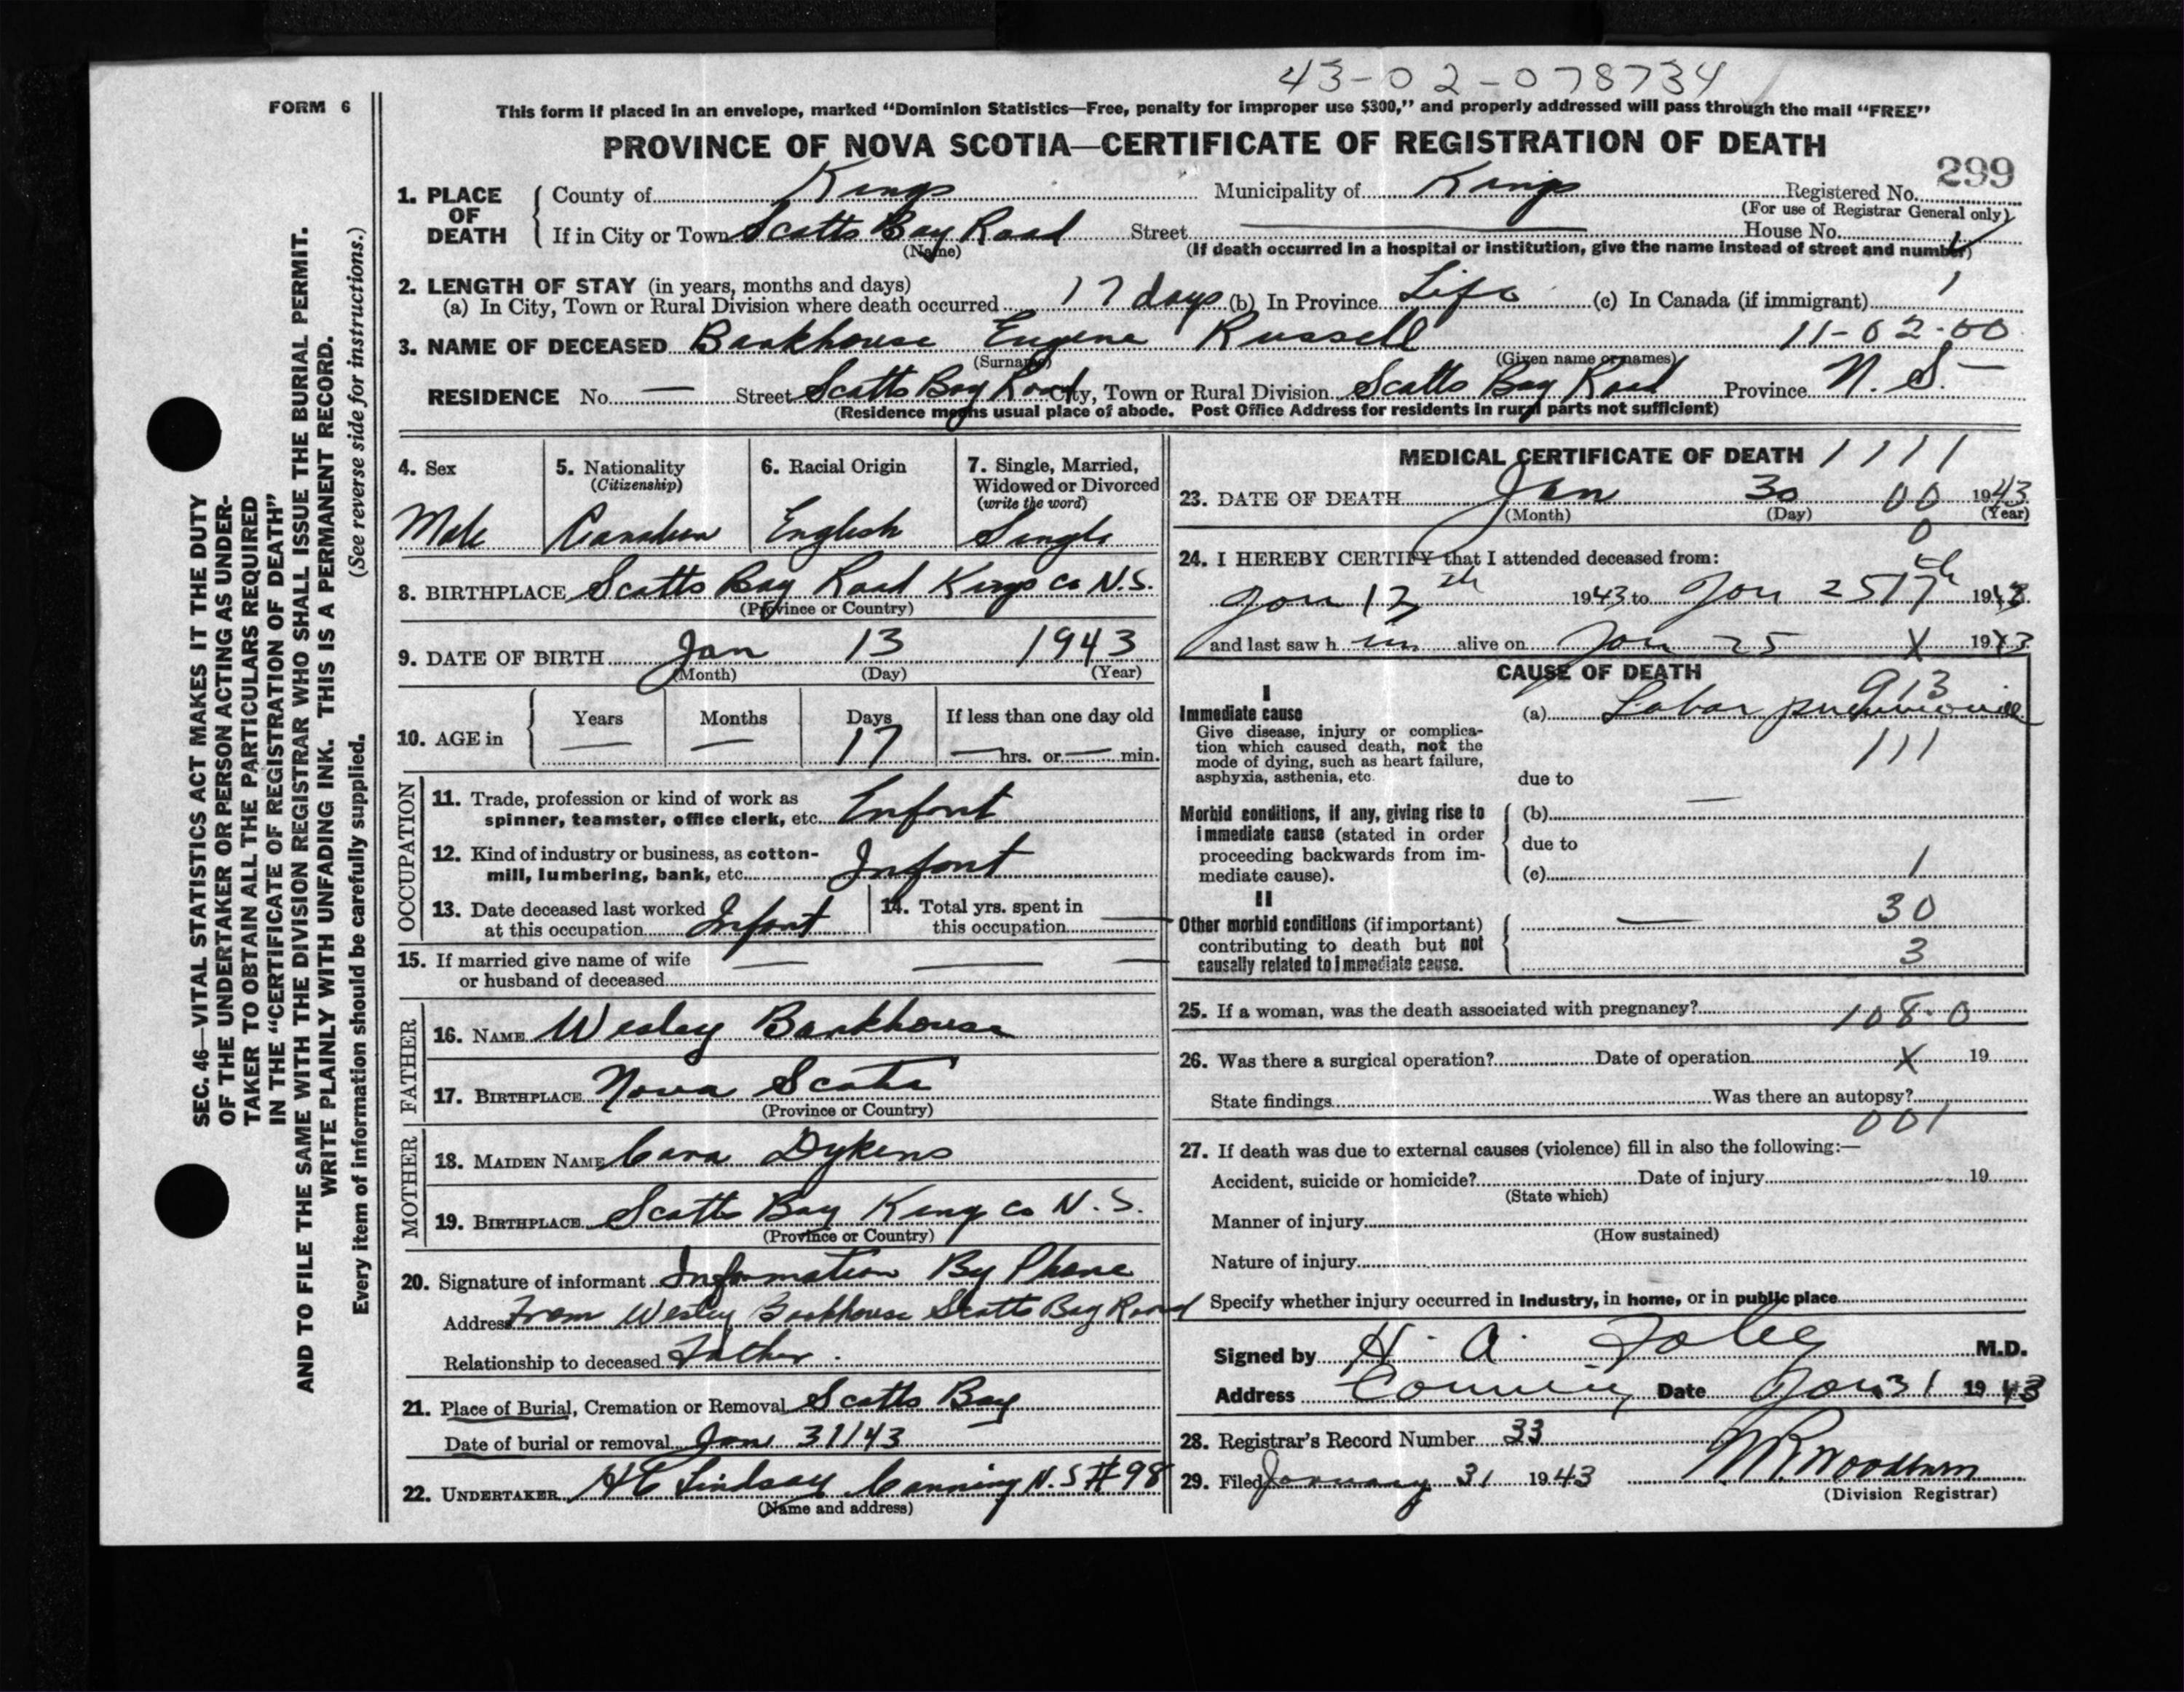 43-02-078734
FORM 6
This form if placed in an envelope, marked "Dominion Statistics—Free, penalty for improper use $300," and properly addressed will pass through the mail "FREE"
PROVINCE OF NOVA SCOTIA—CERTIFICATE OF REGISTRATION OF DEATH
299
1. PLACE OF DEATH County of Kings Municipality of Kings Registered No.
(For use of Registrar General only)
If in City or Town Scotts Bay Road Street House No.
(Name) (If death occurred in a hospital or institution, give the name instead of street and number)
2. LENGTH OF STAY (in years, months and days)
(a) In City, Town or Rural Division where death occurred 17 days (b) In Province Life (c) In Canada (if immigrant) 1
3. NAME OF DECEASED Barkhouse Eugene Russell 11-02-00
(Surname) (Given name or names)
RESIDENCE No. — Street Scotts Bay Road City, Town or Rural Division Scotts Bay Road Province N. S.
(Residence means usual place of abode. Post Office Address for residents in rural parts not sufficient)
4. Sex
Male
5. Nationality
(Citizenship)
Canadian
6. Racial Origin
English
7. Single, Married,
Widowed or Divorced
(write the word)
Single
8. BIRTHPLACE Scotts Bay Road Kings Co N.S.
(Province or Country)
9. DATE OF BIRTH Jan 13 1943
(Month) (Day) (Year)
10. AGE in Years — Months — Days 17 If less than one day old
— hrs. or — min.
OCCUPATION
11. Trade, profession or kind of work as
spinner, teamster, office clerk, etc. Infant
12. Kind of industry or business, as cotton-
mill, lumbering, bank, etc. Infant
13. Date deceased last worked
at this occupation Infant
14. Total yrs. spent in
this occupation —
15. If married give name of wife
or husband of deceased — —
FATHER
16. NAME Wesley Barkhouse
17. BIRTHPLACE Nova Scotia
(Province or Country)
MOTHER
18. MAIDEN NAME Cora Dykens
19. BIRTHPLACE Scotts Bay Kings Co N.S.
(Province or Country)
20. Signature of informant Information By Phone
Address From Wesley Barkhouse Scotts Bay Road
Relationship to deceased Father.
21. Place of Burial, Cremation or Removal Scotts Bay
Date of burial or removal Jan 31/43
22. UNDERTAKER H C Lindsay Canning N.S #98
(Name and address)
MEDICAL CERTIFICATE OF DEATH 1111
23. DATE OF DEATH Jan 30 00 1943
(Month) (Day) (Year)
0
24. I HEREBY CERTIFY that I attended deceased from:
Jan 13th 1943 to Jan 25 1943
and last saw h im alive on Jan 25 X 1943
CAUSE OF DEATH
913
I
Immediate cause
Give disease, injury or complica-
tion which caused death, not the
mode of dying, such as heart failure,
asphyxia, asthenia, etc.
(a) Lobar pneumonia
111
due to
Morbid conditions, if any, giving rise to
immediate cause (stated in order
proceeding backwards from im-
mediate cause).
(b) —
due to
(c) 1
II
Other morbid conditions (if important)
contributing to death but not
causally related to immediate cause.
— 30
3
25. If a woman, was the death associated with pregnancy? 108.0
26. Was there a surgical operation? Date of operation X 19
State findings Was there an autopsy?
001
27. If death was due to external causes (violence) fill in also the following:—
Accident, suicide or homicide? Date of injury 19
(State which)
Manner of injury
(How sustained)
Nature of injury
Specify whether injury occurred in Industry, in home, or in public place
Signed by H. A. M.D.
Address Canning Date Jan 31 1943
28. Registrar's Record Number 33
29. Filed January 31 1943 Woodburn
(Division Registrar)
SEC. 46—VITAL STATISTICS ACT MAKES IT THE DUTY
OF THE UNDERTAKER OR PERSON ACTING AS UNDER-
TAKER TO OBTAIN ALL THE PARTICULARS REQUIRED
IN THE "CERTIFICATE OF REGISTRATION OF DEATH"
AND TO FILE THE SAME WITH THE DIVISION REGISTRAR WHO SHALL ISSUE THE BURIAL PERMIT.
WRITE PLAINLY WITH UNFADING INK. THIS IS A PERMANENT RECORD.
Every item of information should be carefully supplied. (See reverse side for instructions.)